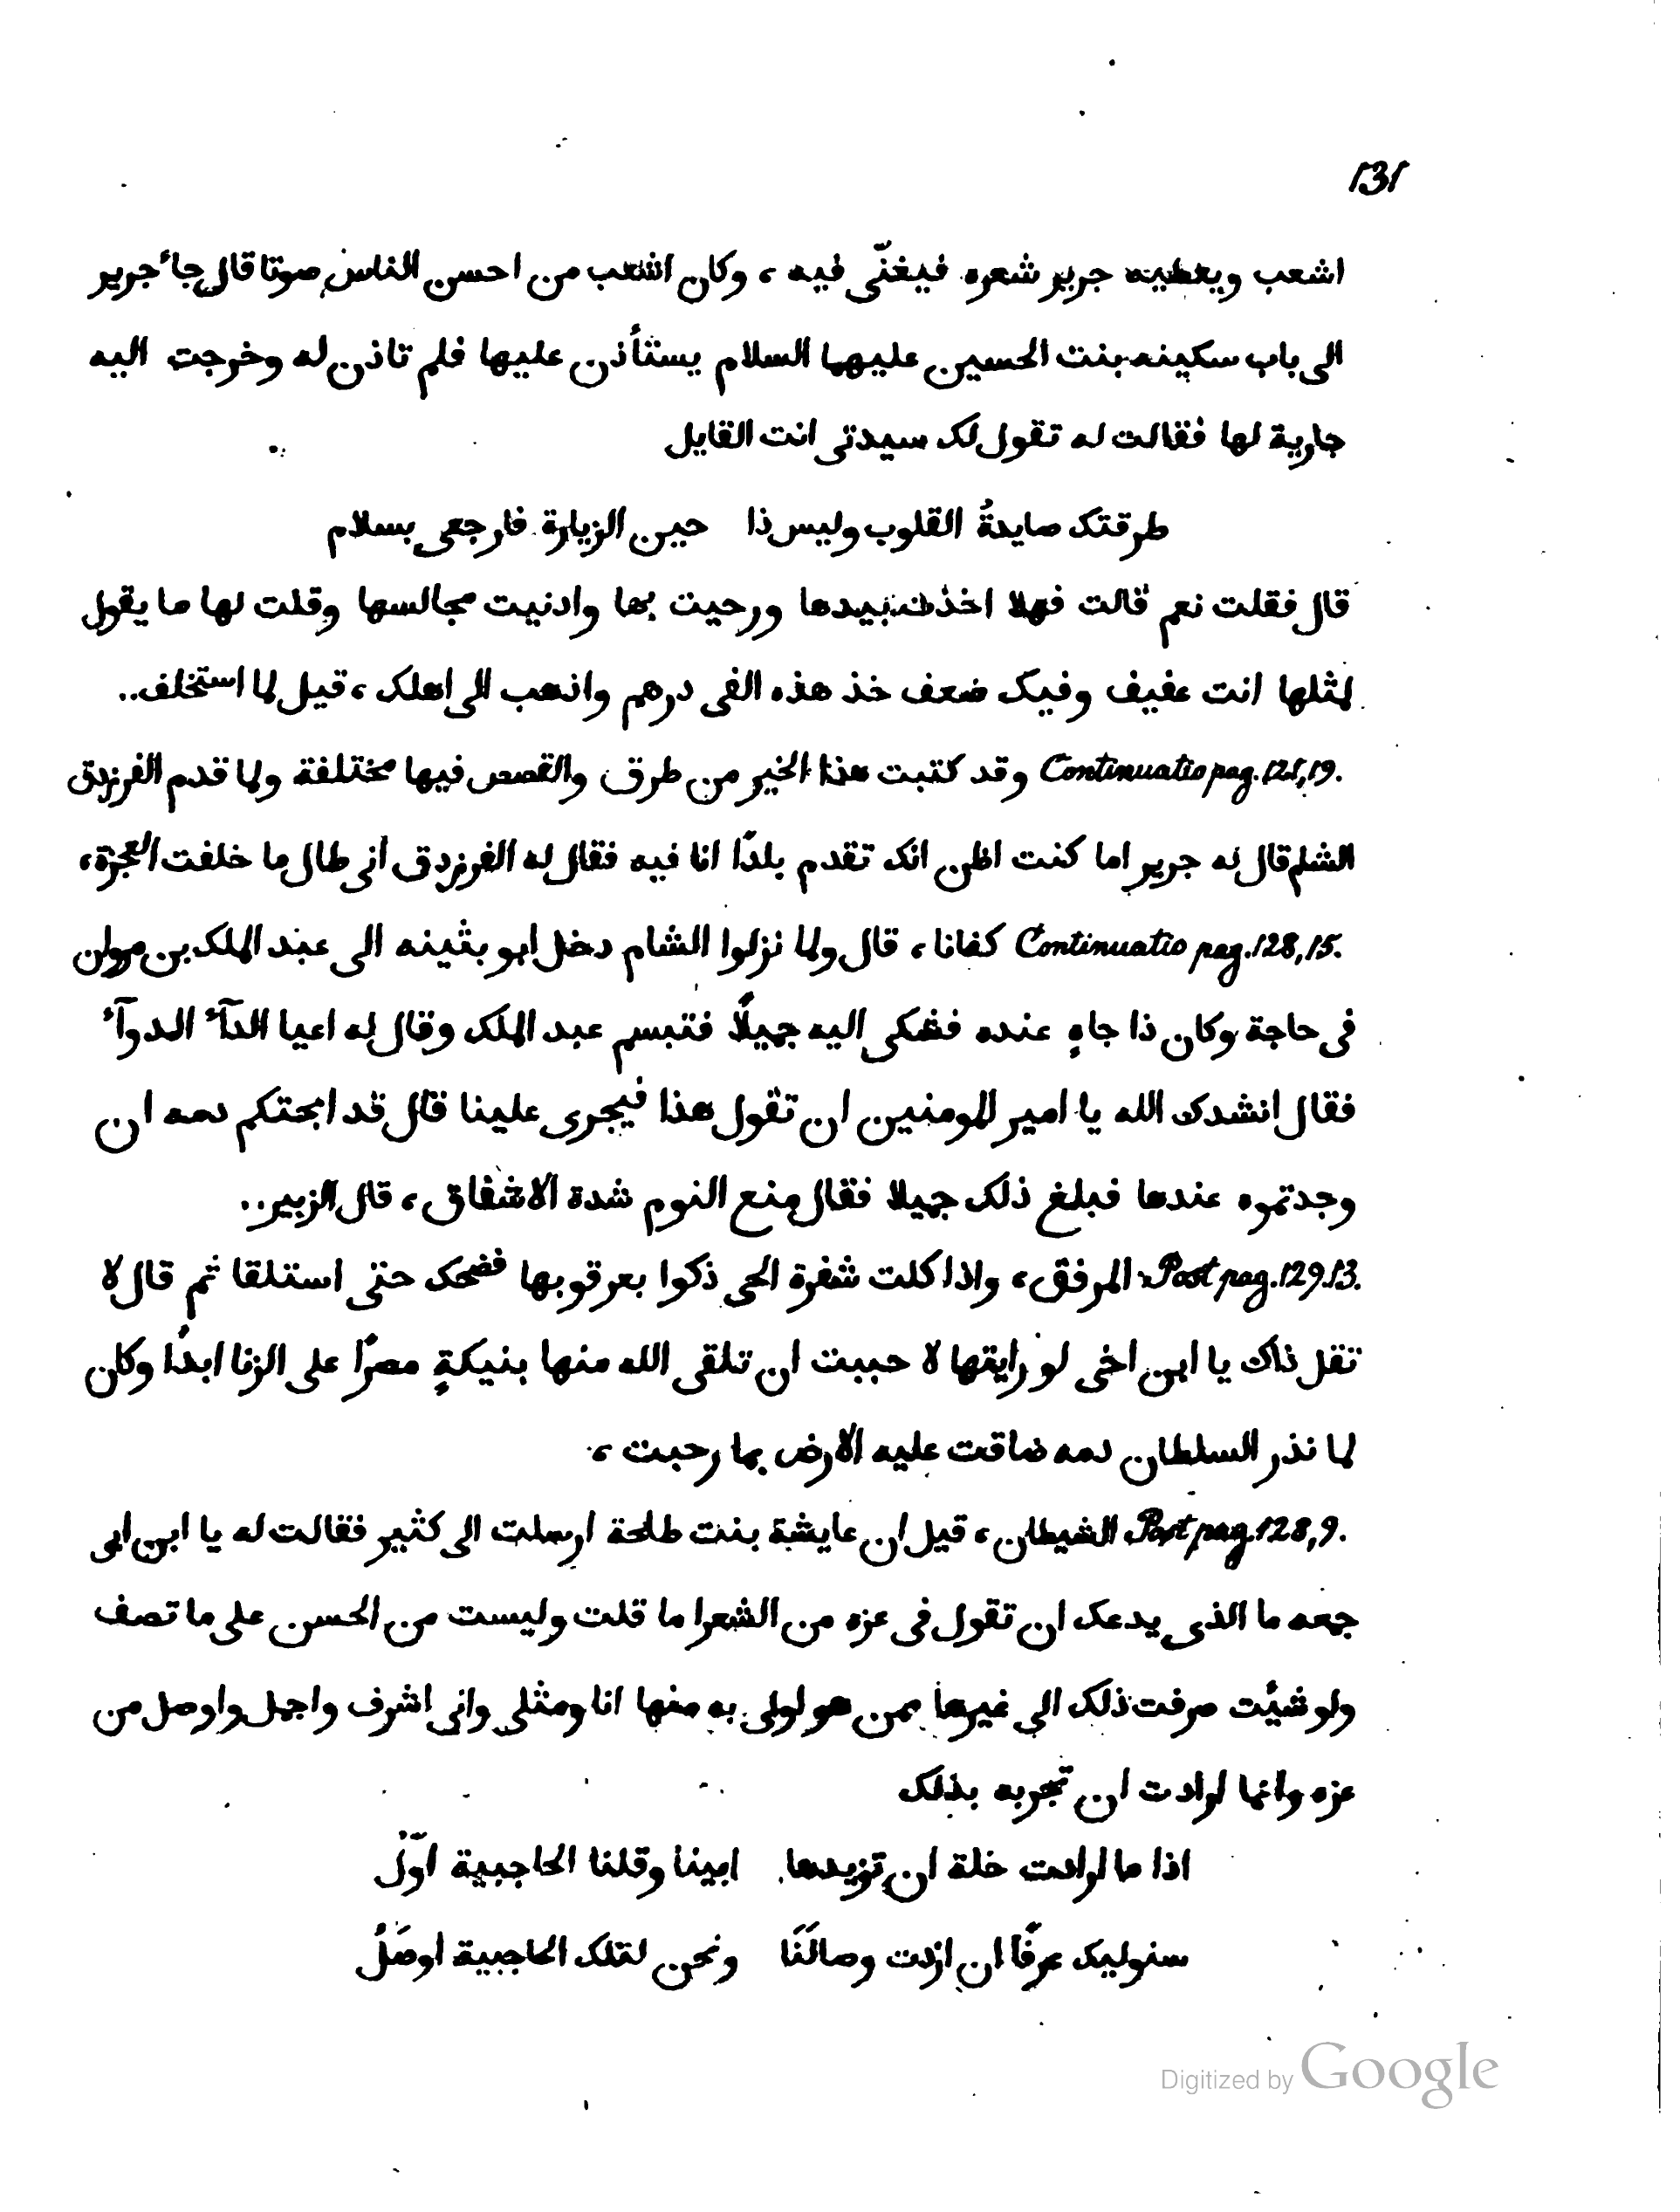 131
اشعب ويعطيه جرير شعره فيغنّى فيه ، وكان اشعب من احسن الناس صوتا قال جاء جرير
الى باب سكينه بنت الحسين عليهما السلام يستأذن عليها فلم تاذن له وخرجت اليه
جارية لها فقالت له تقول لك سيدتى انت القايل
طرقتك صايدةُ القلوب وليس ذا حين الزيارة فارجعى بسلام
قال فقلت نعم قالت فهلا اخذت بيدها ورحيت بها وادنيت مجالسها وقلت لها ما يقول
لمثلها انت عفيف وفيك ضعف خذ هذه الفى درهم واذهب الى اهلك ، قيل لما استخلف..
Continuatio pag. 121,19. وقد كتبت هذا الخبر من طرق والقصص فيها مختلفة ولما قدم الفرزدق
الشام قال له جرير اما كنت اظن انك تقدم بلدًا انا فيه فقال له الفرزدق انى طال ما خلفت العجزة ،
Continuatio pag. 128,15. كفانا ، قال ولما نزلوا الشام دخل ابو بثينه الى عبد الملك بن مروان
فى حاجة وكان ذا جاهٍ عنده فشكى اليه جميلًا فتبسم عبد الملك وقال له اعيا الدآء الدوآء
فقال انشدك الله يا امير المومنين ان تقول هذا فيجرى علينا قال قد ابحتكم دمه ان
وجدتموه عندها فبلغ ذلك جميلا فقال منع النوم شدة الاشفاق ، قال الزبير..
Post pag. 129.13. المرفق ، واذا كلت شفرة الحى ذكوا بعرقوبها فضحك حتى استلقا ثم قال لا
تقل ذاك يا ابن اخى لو رايتها لا حببت ان تلقى الله منها بنيكةٍ مصرًا على الزنا ابدًا وكان
لما نذر السلطان دمه ضاقت عليه الارض بما رحبت ،
Post pag. 128,9. الشيطان ، قيل ان عايشة بنت طلحة ارسلت الى كثير فقالت له يا ابن ابى
جمعه ما الذى يدعك ان تقول فى عزه من الشعرا ما قلت وليست من الحسن على ما تصف
ولو شئت صرفت ذلك الى غيرها ممن هو اولى به منها انا ومثلى وانى اشرف واجمل واوصل من
عزه وانما ارادت ان تجربه بذلك
اذا ما ارادت خلة ان تزيدها ابينا وقلنا الحاجبية اوّلُ
سنوليك عرفًا ان اردت وصالَنَا ونحن لتلك الحاجبية اوصَلُ
Digitized by Google